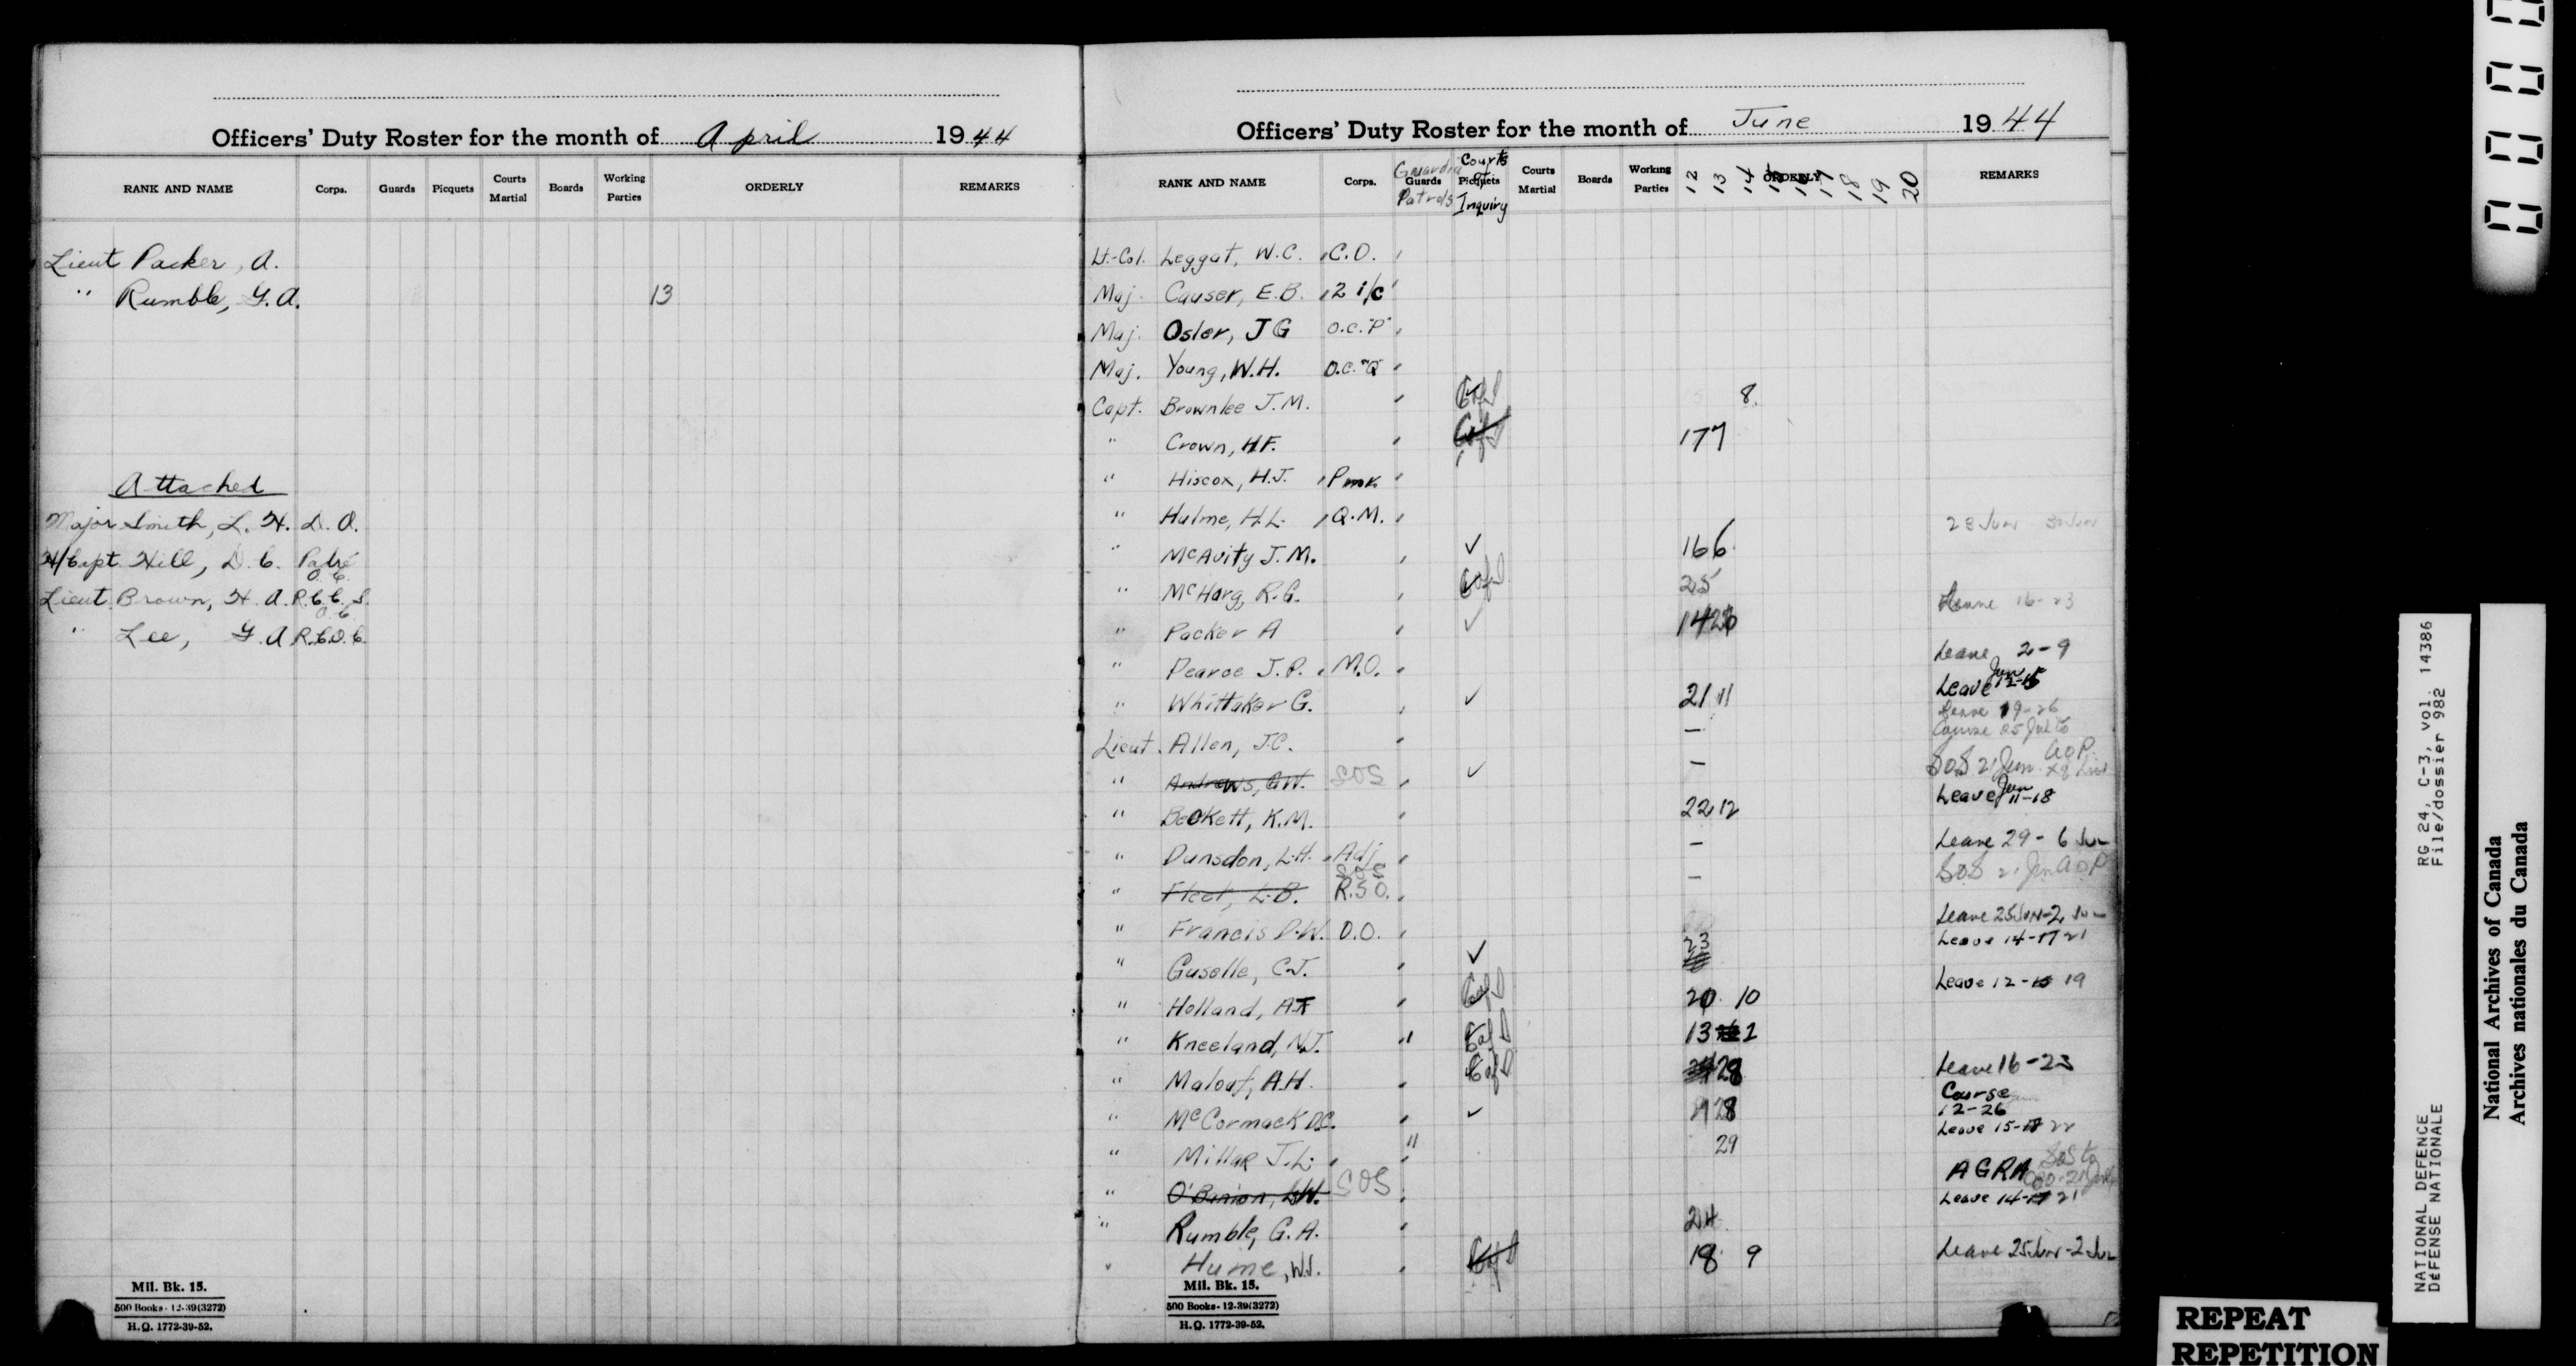 Officers' Duty Roster for the month of April 1944
RANK AND NAME Corps. Guards Picquets Courts Martial Boards Working Parties ORDERLY REMARKS
Lieut Packer, A.
" Rumble, G. A. 13
Attached
Major Smith, L. H. D. O.
H/Capt. Hill, D. C. Padre
O. C.
Lieut Brown, H. A. R.C.C.S.
O. C.
" Lee, G. A R.C.O.C.
Mil. Bk. 15.
500 Books - 12-39(3272)
H.Q. 1772-39-52.
Officers' Duty Roster for the month of June 1944
RANK AND NAME Corps. Guards Patrols Picquets Courts of Inquiry Courts Martial Boards Working Parties ORDERLY 12 13 14 15 16 17 18 19 20 REMARKS
Lt.-Col. Leggat, W.C. C.O.
Maj. Causer, E.B. 2 i/c
Maj. Osler, J G O.C. "P"
Maj. Young, W.H. O.C. "Q"
Capt. Brownlee J.M. 8
" Crown, H.F. 17 7
" Hiscox, H.J. Pmk.
" Hulme, H.L. Q.M. 28 Jun 30 Jun
" McAvity J.M. ✓ 16 6
" McHarg, R.G. 25 Leave 16-23
" Packer A ✓ 14
" Pearce J.P. M.O. Leave 2-9
" Whittaker G. ✓ 21 11 Leave Jun 12-15
Leave 19-26
Lieut. Allen, J.C. — Course
" Andrews, G.W. SOS ✓ — SOS 21 Jun AOP
" Beckett, K.M. 22 12 Leave Jun 11-18
" Dunsdon, L.H. Adj — Leave 29 - 6
" Fleet, L.B. SOS R.S.O. — SOS 21 Jun AOP
" Francis D.W. O.O. Leave 25 Jun - 2
" Guselle, C.J. ✓ 23 Leave 14-17 21
" Holland, A.F 20 10 Leave 12- 19
" Kneeland, N.J. " 13 2
" Malouf, A.H. 28 Leave 16-23
" McCormack D.C. ✓ 28 Course
12-26
" Millar J.L. " 29 Leave 15-18 22
" O'Binion, SOS AGRA SOS to
" Rumble, G. A. 24 Leave 14-17 21
" Hume, W.J. 18 9 Leave 25 Jun - 2
Mil. Bk. 15.
500 Books - 12-39(3272)
H.Q. 1772-39-52.
RG 24, C-3, vol. 14386
File/dossier 982
NATIONAL DEFENCE
DéFENSE NATIONALE
National Archives of Canada
Archives nationales du Canada
REPEAT
REPETITION